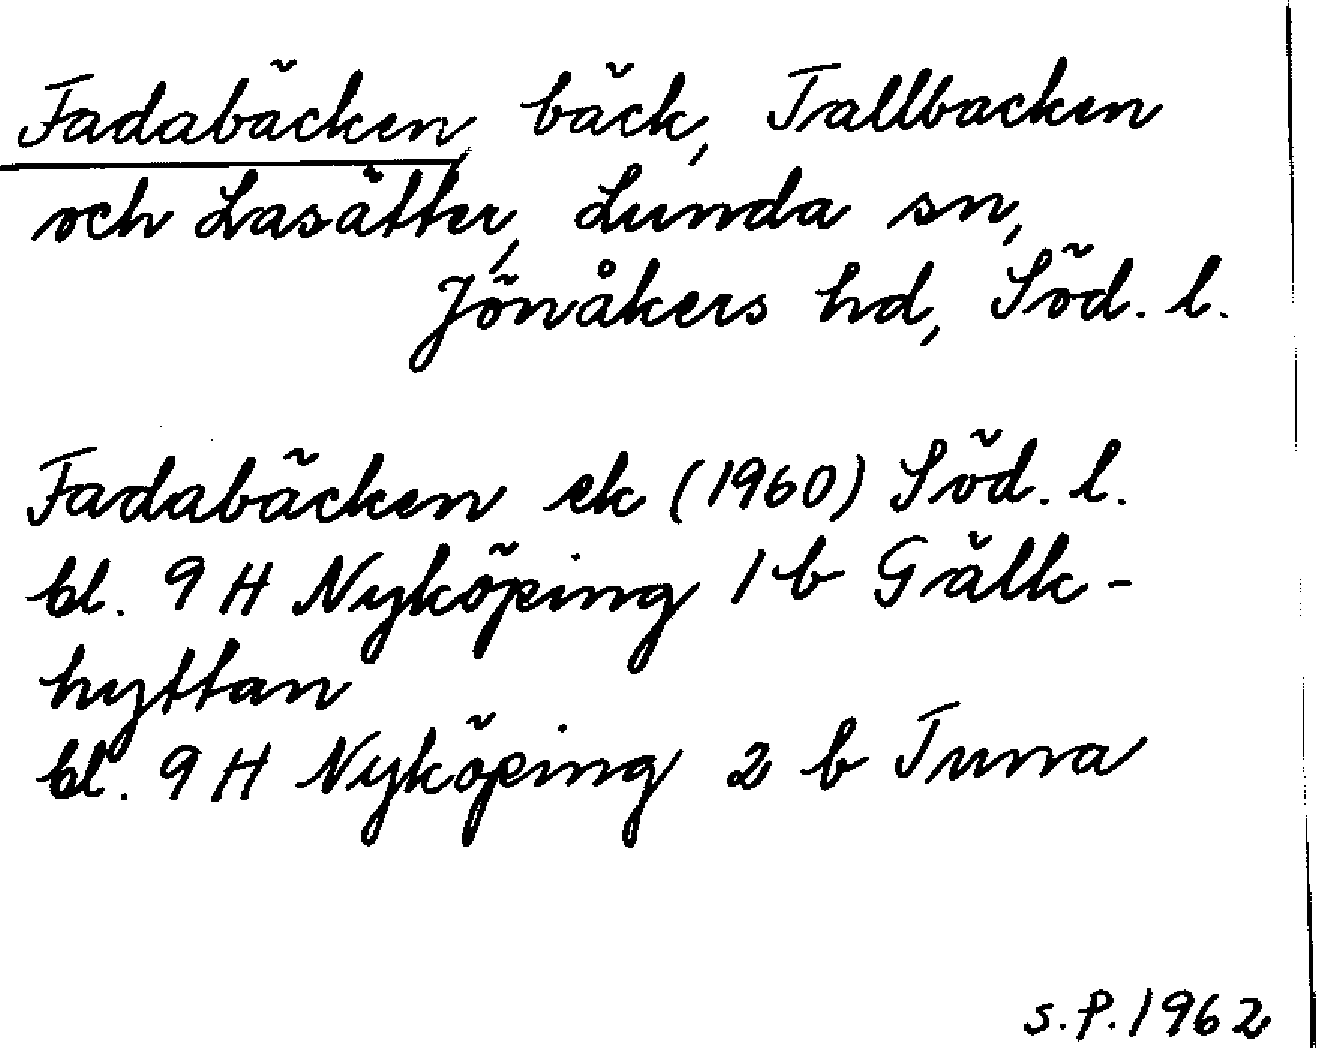 Fadabäcken, bäck, Tallbacken
och Lasätter, Lunda sn,
Jönåkers hd, Söd. l.
Fadabäcken ek (1960) Söd. l.
bl. 9 H Nyköping 1 b Gälk-
hyttan
bl. 9 H Nyköping 2 b Tuna
s.P. 1962